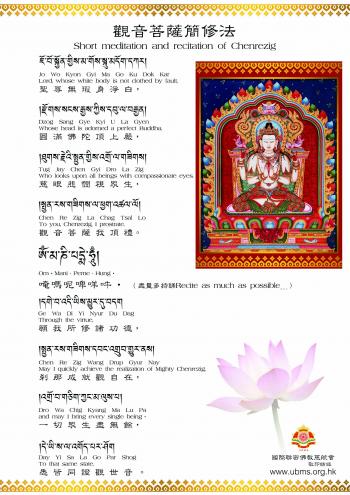 觀音菩薩簡修法
Short meditation and recitation of Chenrezig
ཇོ་བོ་སྐྱོན་གྱིས་མ་གོས་སྐུ་མདོག་དཀར།
Jo Wo Kyon Gyi Ma Go Ku Dok Kar
Lord, whose whole body is not clothed by fault,
聖尊無瑕身淨白，
།རྫོགས་སངས་རྒྱས་ཀྱིས་དབུ་ལ་བརྒྱན།
Dzog Sang Gye Kyi U La Gyen
Whose head is adorned a perfect Buddha,
圓滿佛陀頂上嚴，
།ཐུགས་རྗེའི་སྤྱན་གྱིས་འགྲོ་ལ་གཟིགས།
Tug Jay Chen Gyi Dro La Zig
Who looks upon all beings with compassionate eyes,
慈眼悲憫視眾生，
།སྤྱན་རས་གཟིགས་ལ་ཕྱག་འཚལ་ལོ།
Chen Re Zig La Chag Tsal Lo
To you, Chenrezig, I prostrate.
觀音菩薩我頂禮。
ཨོཾ་མ་ཎི་པདྨེ་ཧཱུྃ།
Om · Mani · Peme · Hung ·
唵嘛呢啤咩吽 · （盡量多持誦Recite as much as possible...）
།དགེ་བ་འདི་ཡིས་མྱུར་དུ་བདག
Ge Wa Di Yi Nyur Du Dag
Through the virtue,
願我所修諸功德，
།སྤྱན་རས་གཟིགས་དབང་འགྲུབ་གྱུར་ནས།
Chen Re Zig Wang Drup Gyur Nay
May I quickly achieve the realization of Mighty Chenrezig,
剎那成就觀自在，
།འགྲོ་བ་གཅིག་ཀྱང་མ་ལུས་པ།
Dro Wa Chig Kyang Ma Lu Pa
and may I bring every single being,
一切眾生盡無餘，
།དེ་ཡི་ས་ལ་འགོད་པར་ཤོག
Day Yi Sa La Go Par Shog
To that same state.
悉皆同證觀世音。
國際聯密佛教慈航會
敬印結緣
www.ubms.org.hk